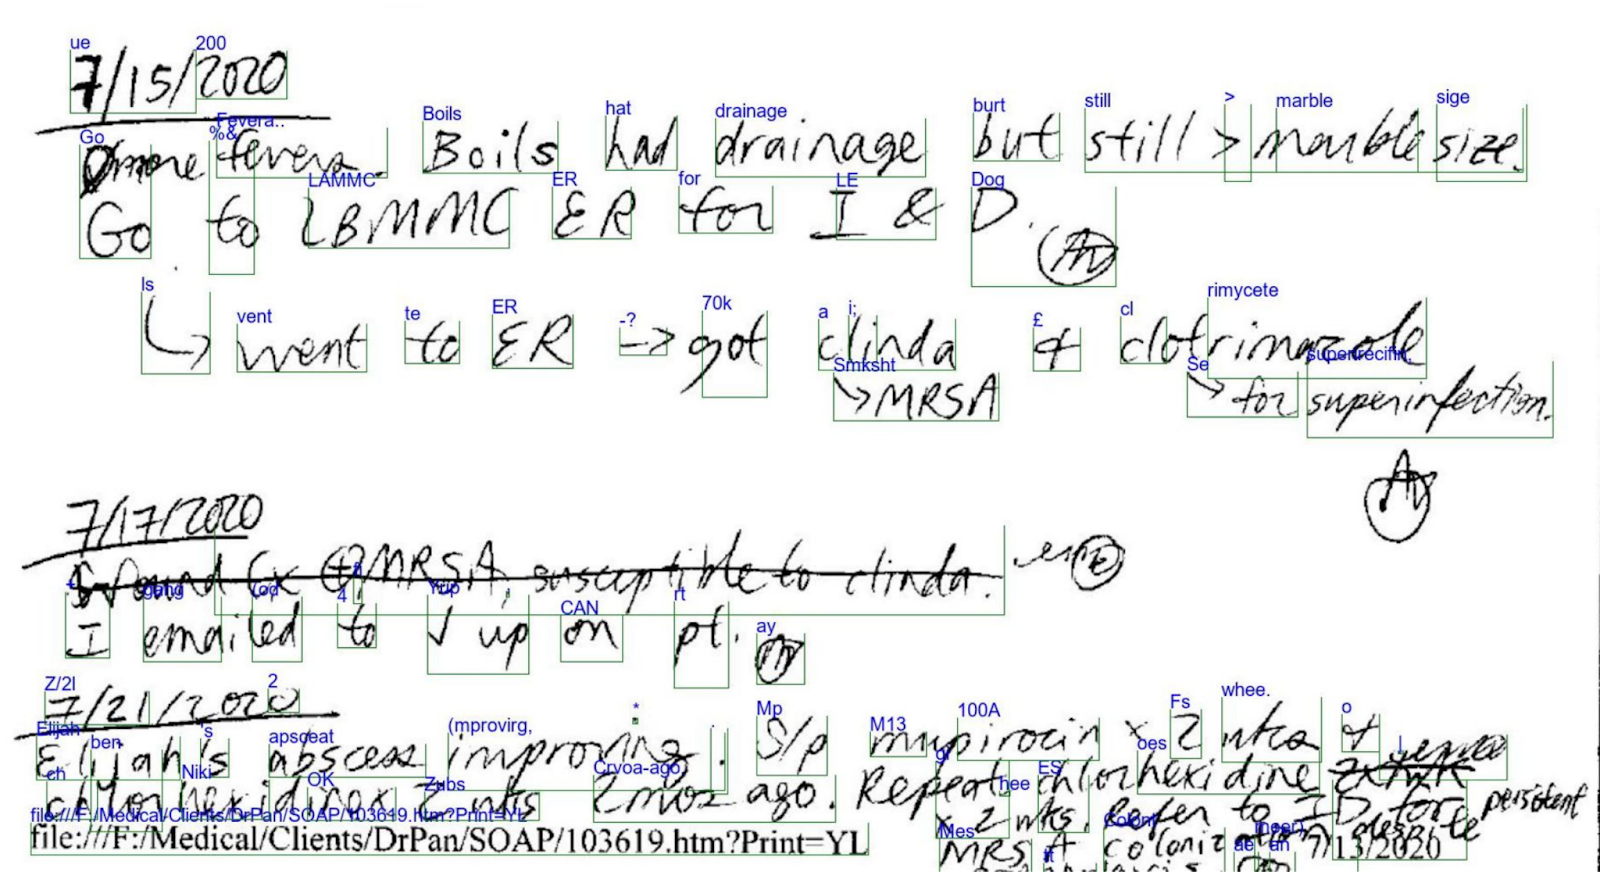 ue 200
7/15/2020
Go %& Fevera.. Boils hat drainage burt still > marble sige
fevers. Boils had drainage but still > marble size.
LAMMC ER for LE Dog
Go to LBMMC ER for I & D.
ls vent te ER -? 70k a i; £ cl rimycete
went to ER -> got clinda & clotrimazole
Smksht Se
→ MRSA → for superinfection.
7/17/2020
Wound Cx ⊕ MRSA, susceptible to clinda. error
gang 4 Yup CAN rt ay
I emailed to ✓ up on pt.
Z/2l 2
7/21/2020
Elijah 's apsceat (mprovirg, * Mp M13 100A Fs whee. o
Elijah's abscess improving. S/p mupirocin x 2 wks &
ben ch Niki OK Zubs Crvoa-ago oes gr hee ES
chlorhexidine x 2 wks 2 mos ago. Repeat chlorhexidine
x 2 wks. Refer to ID for persistent
file:///F:/Medical/Clients/DrPan/SOAP/103619.htm?Print=YL
file:///F:/Medical/Clients/DrPan/SOAP/103619.htm?Print=YL 7/13/2020
Mes ae an
MRSA coloniz despite